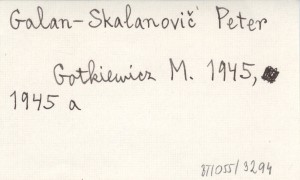 Galan-Skalanovič Peter
Gotkiewicz M. 1945,
1945 a
87/055/3294